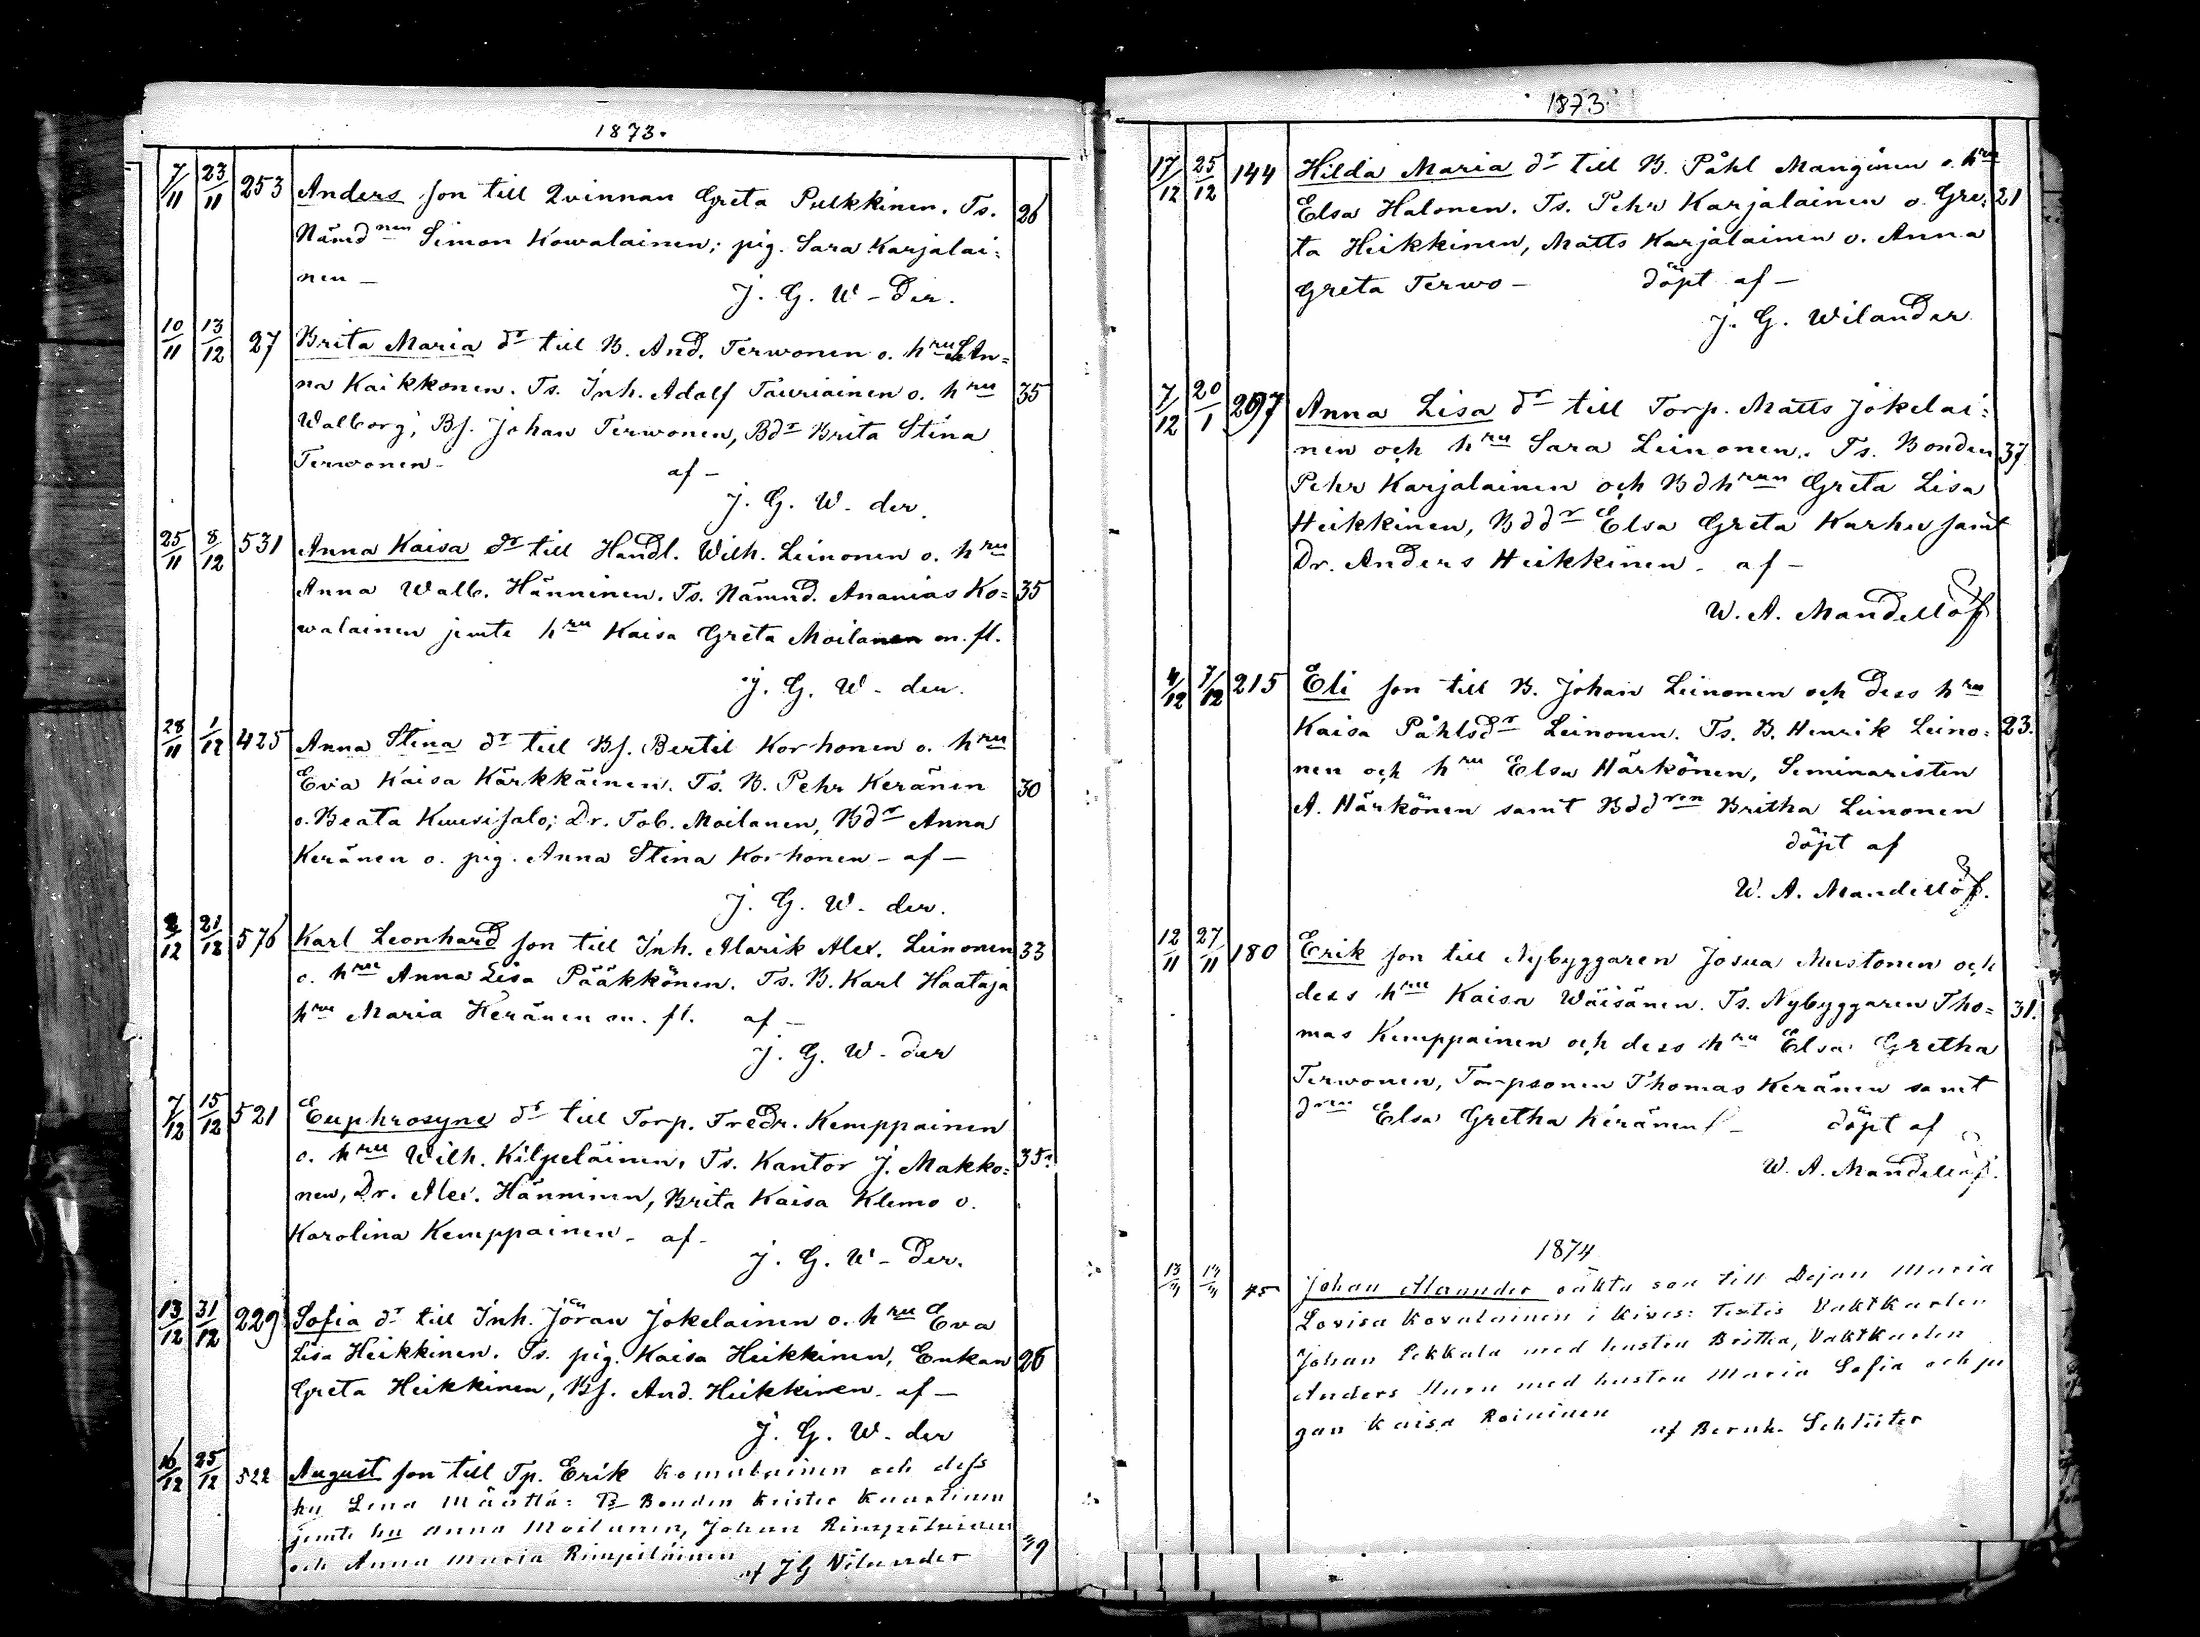 1873.
7/11 23/11 253 Anders son till Qvinnan Greta Pulkkinen. Ts. 26
Nämdnen Simon Kowalainen; pig. Sara Karjalai=
nen –
J. G. W-der.
10/11 13/12 27 Brita Maria dr till B. And. Terwonen o. hru An=
na Kaikkonen. Ts. Inh. Adolf Tauriainen o. hru 35
Walborg; Bs. Johan Terwonen, Bdr Brita Stina
Terwonen – af –
J. G. W. der.
25/11 8/12 531 Anna Kaisa dr till Handl. Wilh. Leinonen o. hru
Anna Walb. Hänninen. Ts. Nämnd. Ananias Ko= 35
walainen jemte hru Kaisa Greta Moilanen m. fl.
J. G. W. der.
28/11 1/12 425 Anna Stina dr till Bs. Bertil Korhonen o. hru
Eva Kaisa Kärkkäinen. Ts. B. Pehr Keränen 30
o. Beata Kuusisalo; Dr. Tob. Moilanen, Bdr Anna
Keränen o. pig. Anna Stina Korhonen – af –
J. G. W. der.
12 21/12 576 Karl Leonhard son till Inh. Alarik Alex. Leinonen 33
o. hru Anna Lisa Pääkkönen. Ts. B. Karl Haataja
hru Maria Keränen m. fl. af –
J. G. W. der
7/12 15/12 521 Euphrosyne dr till Torp. Fredr. Kemppainen
o. hru Wilh. Kilpeläinen. Ts. Kantor J. Makko= 35
nen, Dr. Alex. Hänninen, Brita Kaisa Klemo o.
Karolina Kemppainen – af –
J. G. W-der.
13/12 31/12 229 Sofia dr till Inh. Jöran Jokelainen o. hru Eva
Lisa Heikkinen. Ts. pig. Kaisa Heikkinen, Enkan 26
Greta Heikkinen, Bs. And. Heikkinen – af –
J. G. W. der
16/12 25/12 522 August son till Tp. Erik Komulainen och dess
hu Lena Määttä: Bonden Krister
jemte hu Anna Moilanen, Johan Rimpiläinen
och Anna Maria Rimpiläinen 39
af JG Vilander
1873.
17/12 25/12 144 Hilda Maria dr till B. Påhl Manginen o. hru
Elsa Halonen. Ts. Pehr Karjalainen o. Gre= 21
ta Heikkinen, Matts Karjalainen o. Anna
Greta Terwo – döpt af –
J. G. Wilander
7/12 20/1 297 Anna Lisa dr till Torp. Matts Jokelai=
nen och hru Sara Leinonen. Ts. Bonden 37
Pehr Karjalainen och Bdhrun Greta Lisa
Heikkinen, Bddr Elsa Greta Karhu samt
Dr. Anders Heikkinen – af –
W. A. Mandellöf
4/12 7/12 215 Eli son till B. Johan Leinonen och dess hru
Kaisa Påhlsdr Leinonen. Ts. B. Henrik Leino= 23.
nen och hru Elsa Härkönen, Seminaristen
A. Härkönen samt Bddren Britha Leinonen
döpt af
W. A. Mandellöf.
12/11 27/11 180 Erik son till Nybyggaren Josua Mustonen och
dess hru Kaisa Wäisänen. Ts. Nybyggaren Tho= 31.
mas Kemppainen och dess hru Elsa Gretha
Terwonen, Torpsonen Thomas Keränen samt
dren Elsa Gretha Keränen – döpt af
W. A. Mandellöf.
1874
45 Johan Alexander oäkta son till Dejan Maria
Lovisa Kovalainen i Testis Vaktkarlen
Johan Pekkala med hustru Britha, Vaktkarlen
Anders Huru med hustru Maria Sofia och pi
gan Kaisa Roininen af Bernh. Schlüter